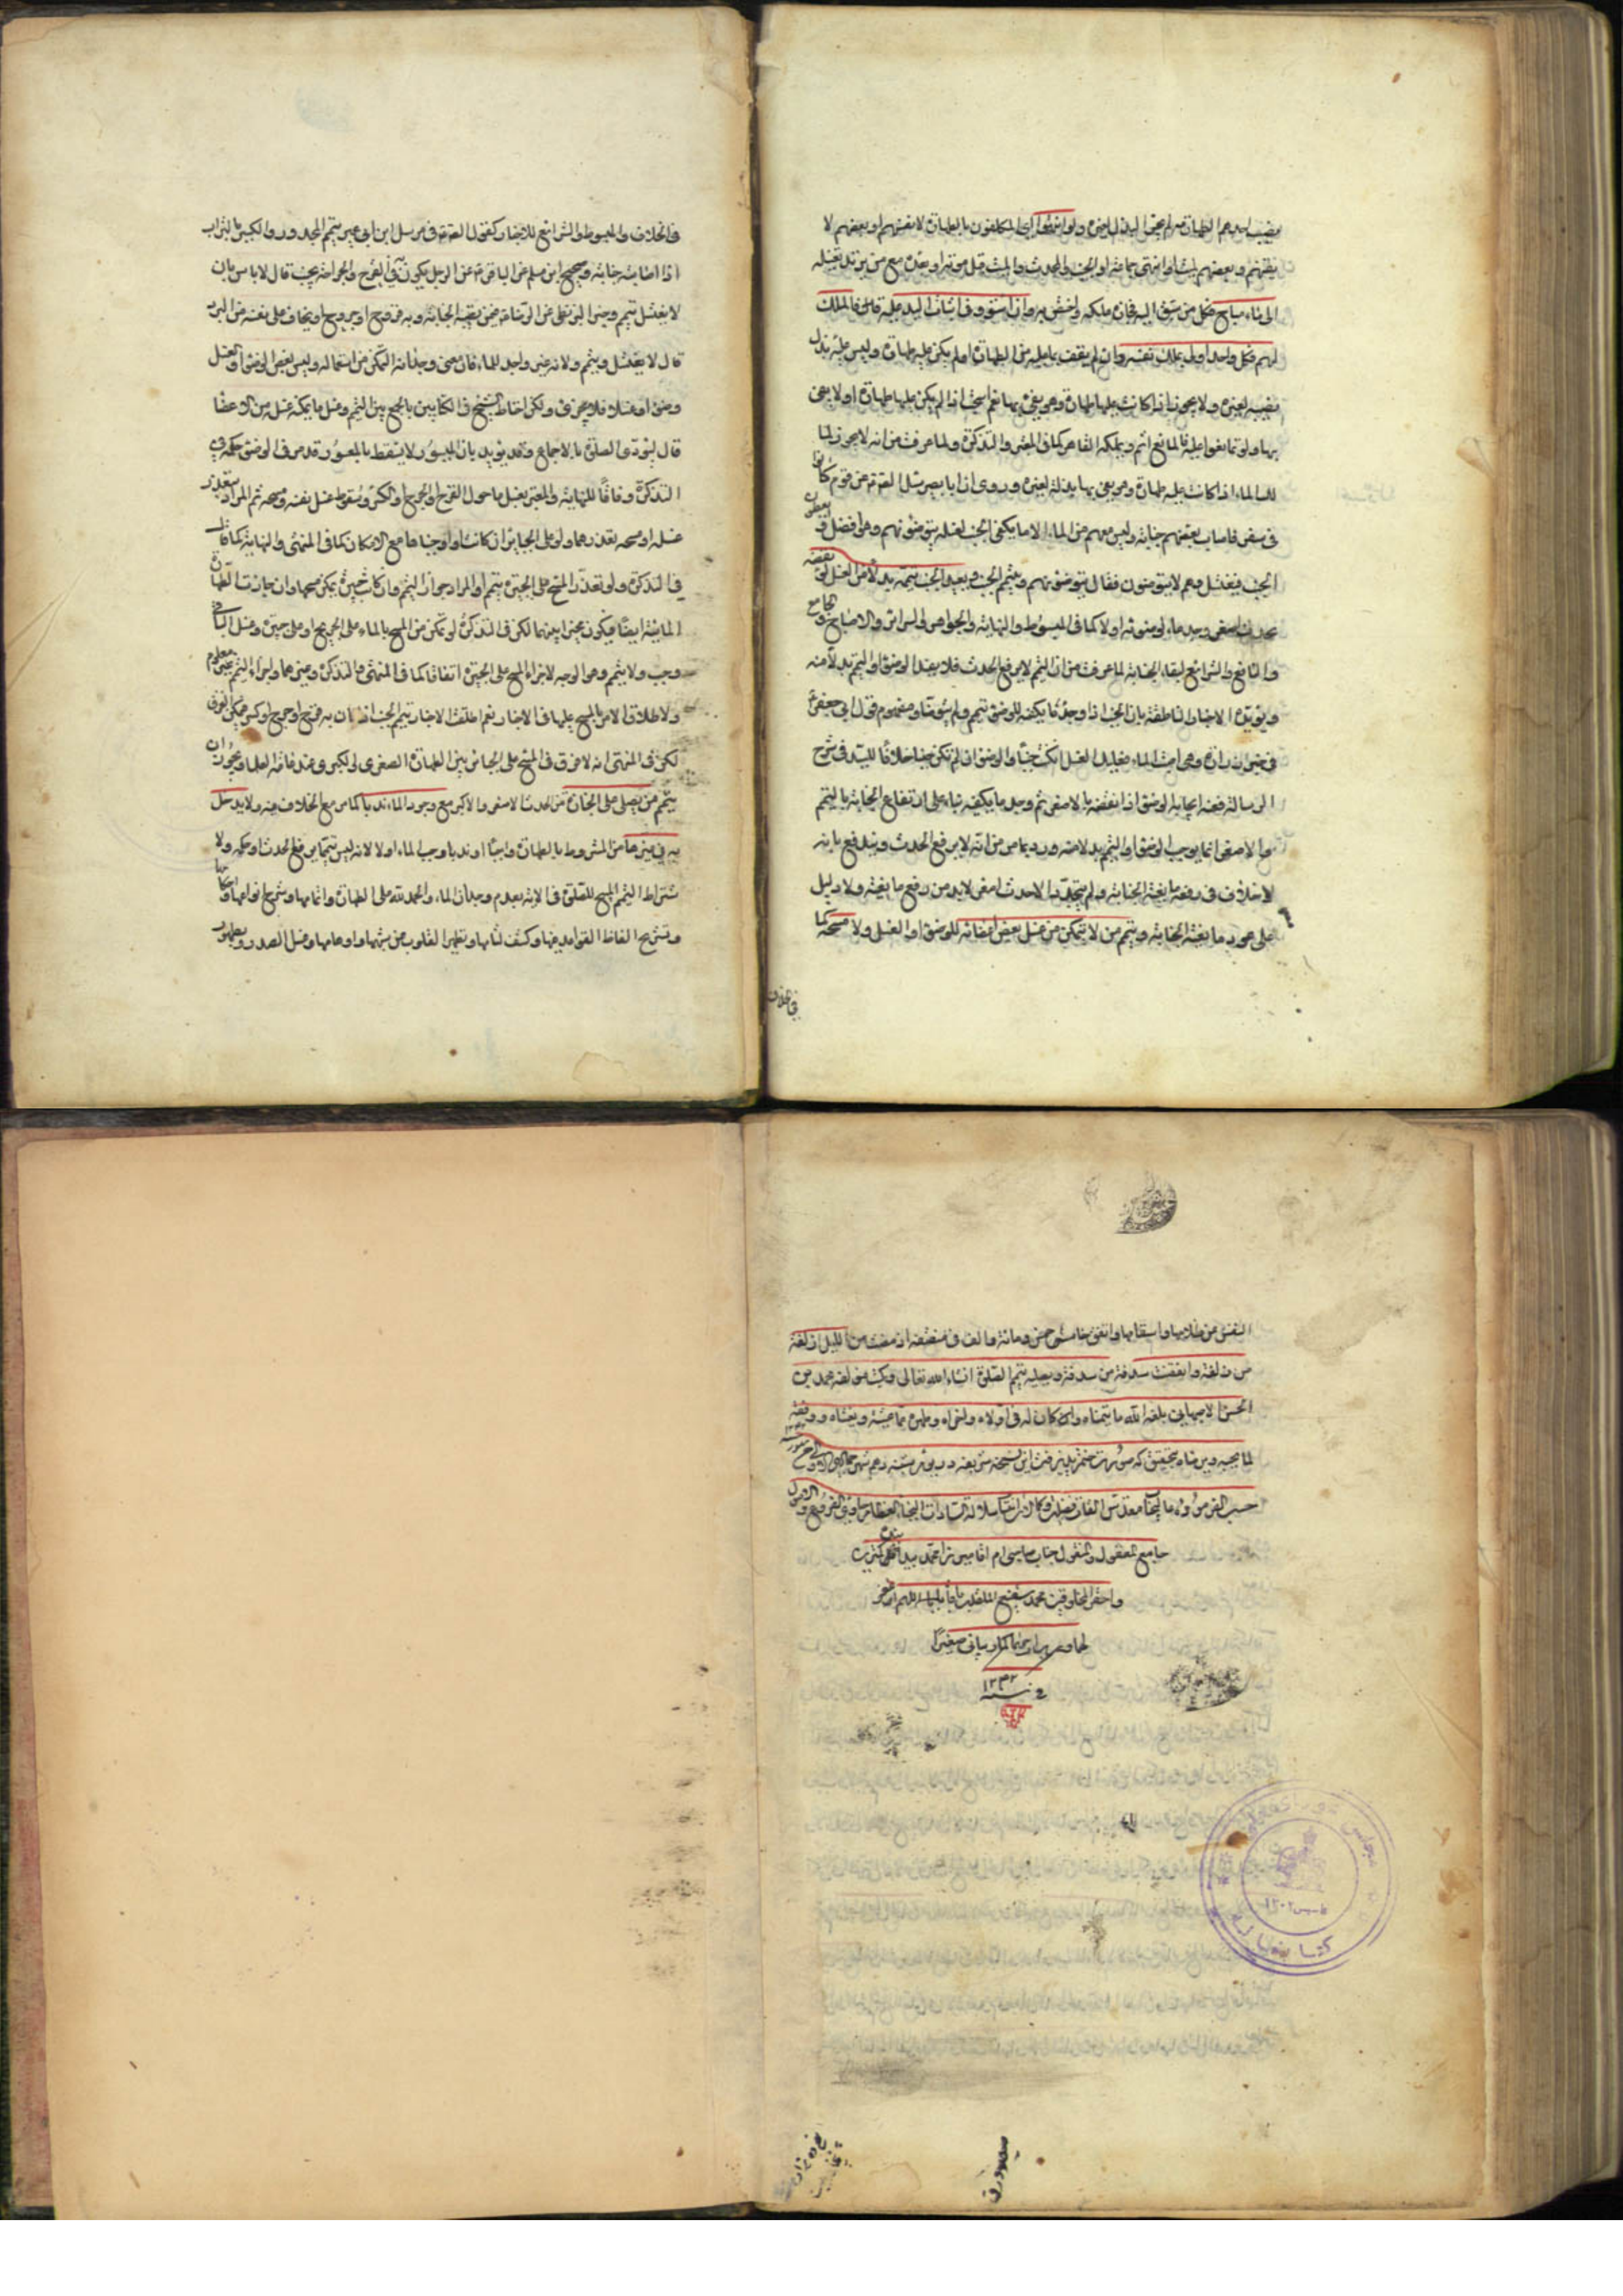 يصيب احدهم الطهارة ولو انتهوا اي المكلفون بالطهارة لا بعضهم او بعضهم لا
بعضهم وبعضهم ليشاوا انتهى جماعة او الجنب والمحدث والميت قبل موته او بعده مع من يريد تغسيله
الى ماء مباح فكل من سبق اليه فحاز ملكه واختص به وان استووا في اثبات اليد عليه فالملك
لهم فكل واحد اولى بملك نفسه وان لم يقف بما عليه من الطهارة او لم يكن عليه طهارة وليس عليه بذل
نصيبه لغيره ولا يجوز اذا كانت عليه طهارة وهو يفي بها نعم استحب اذا لم يكن عليها طهارة او لا يفي
بها ولو تمانعوا عليه فالمانع اثم ويملكه القاهر كما في المعتبر والتذكرة ولما عرفت من انه لا يجوز
للماء اذا كانت عليه طهارة وهو يفي بها بذله لغيره وروى ان ابا بصير سئل الصادق عن قوم كانوا
في سفر فاصاب بعضهم جنابة وليس معهم من الماء الا ما يكفي الجنب لغسله يتوضؤن هم وهو افضل او يعطون
الجنب فيغتسل وهم لا يتوضؤن فقال يتوضؤن هم ويتيمم الجنب ويعيد الجنب تيممه بدلا من الغسل لو نقضه
بحدث اصغر وجد ماء لوضوئه او لا كما في المبسوط والنهاية والجواهر والسرائر والاصباح والجامع
والنافع والشرائع لبقاء الجنابة لما عرفت من ان التيمم لا يرفع الحدث فلا يفيد الوضوء او التيمم بدلا منه
ويؤيده الاخبار الناطقة بان الجنب اذا وجد ما يكفيه للوضوء تيمم ولم يتوضأ ومفهوم قول ابي جعفر
في خبر زرارة ومتى اصبت الماء فعليك الغسل ان كنت جنبا والوضوء ان لم تكن جنبا خلافا للسيد في شرح
الرسالة فعنه ايجابه الوضوء اذا نقضه بالاصغر ثم وجد ما يكفيه بناء على ارتفاع الجنابة بالتيمم
والاصغر انما يوجب الوضوء او التيمم بدلا منه ورد بما مر من انه لا يرفع الحدث ويندفع بانه
لا خلاف في رفعه مانعية الجنابة ولم يتجدد الا حدث اصغر لا بد من رفع مانعيته ولا دليل
على عود مانعية الجنابة ويتيمم من لا يتمكن من غسل بعض اعضائه للوضوء او الغسل ولا مسحه كما
في الخلاف
في الخلاف والمبسوط والشرائع للاخبار كقول الصادق في مرسل ابن ابي عمير يتيمم المجدور والكسير بالتراب
اذا اصابته جنابة وصحيح ابن مسلم عن الباقر عن الرجل يكون به القرح والجراحة يجنب قال لا باس بان
لا يغتسل يتيمم وخبر البزنطي عن الرضا فيمن يصيبه الجنابة وبه قروح او جروح او يخاف على نفسه من البرد
قال لا يغتسل ويتيمم ولانه غير واجد للماء فان معنى وجدانه التمكن من استعماله وليس بعض الوضوء او الغسل
وضوء او غسلا فلا يجزئ ولكن احتاط الشيخ في الكتابين بالجمع بين التيمم وغسل ما يمكنه غسله من الاعضاء
قال ليؤدي الصلوة بالاجماع وقد يؤيد بان الميسور لا يسقط بالمعسور وقد مر في الوضوء حكمه في
التذكرة وفاقا للنهاية والمعتبر بغسل ما حول القرح او الجرح او الكسر وسقوط غسل نفسه ومسحه ثم المراد بتعذر
غسله او مسحه تعذرهما ولو على الجبائر ان كانت او اوجبناها مع الامكان كما في المنتهى والنهاية كما قال
في التذكرة ولو تعذر المسح على الجبيرة يتيمم او المراد جواز التيمم وان كانت جبيرة يمكن مسحها وان جازت الطهارة
المائية ايضا فيكون مخيرا بينهما لكن في التذكرة لو تمكن من المسح بالماء على الجرح او على جبيرة وغسل الباقي
وجب ولا يتيمم وهو الوجه لاجزاء المسح على الجبيرة اتفاقا كما في المنتهى والتذكرة وغيرهما واجزاء التيمم غير معلوم
ولاطلاق الامر بالمسح عليها في الاخبار نعم اطلقت الاخبار تيمم الجنب اذا كان به قرح او جرح او كسر
لكن في المنتهى انه لا فرق في المسح على الجبائر بين الطهارة الصغرى والكبرى عند عامة العلماء ويجوز ان
يتيمم من يصلي على الجنازة من الحدث الاصغر والاكبر مع وجود الماء ندبا كما مر مع الخلاف فيه ولا يدخل
به في غيرها من المشروط بالطهارة واجبا او ندبا وجد الماء او لا لانه ليس تيمما يرفع الحدث او حكمه ولا
شتراط التيمم المبيح للصلوة في الاية بعدم وجدان الماء والحمد لله على الطهارة واتمامها وشرح انواعها واحكامها
وتشريح الفاظ القواعد فيها وكشف لثامها وتطهير القلوب من شبهها واوهامها وغسل الصدور وتطهير
النفس من ظلامها واسقامها واتفق خامس خمس ومائة والف في منتصفه اذ مضت من الليل زلفة
من زلفة وابعقت سدفة من سدفة وبعليه تيمم الصلوة انشاء الله تعالى وكتب مؤلفه محمد بن
الحسن الاصبهاني بلغه الله ما يتمناه وكان له في اولاه واخراه وطهره مما يخشيه ويغشاه ووفقه
لما يحبه ويرضاه بتحقيق كه صورت ختم پذيرفت اين نسخه شريفه در يوم شنبه دهم شهر جمادى الاول
حسب الفرموده عاليجناب مقدس القاب فضايل و كمالات اكتساب سلالة السادات النجباء العظام حاوى الفروع والاصول
جامع المعقول والمنقول جناب سامى ام اقا ميرزا محمد بيد اقل كمترين
واحقر المخلوقين محمد شفيع اللهم اغفر
لهما وارحمهما كما ربياني صغيرا
في سنة ١٢٣٢
مجلس شوراى ملى
١٣٠٢
كتابخانه